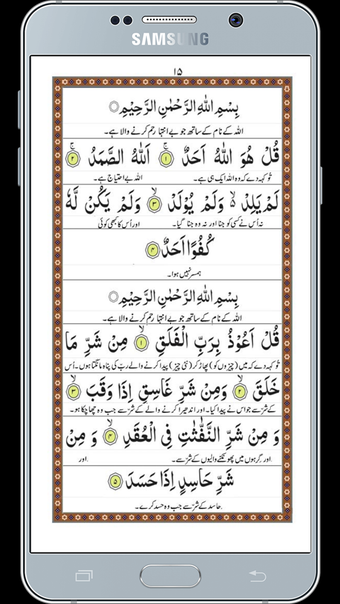 SAMSUNG
١٥
بِسْمِ اللّٰهِ الرَّحْمٰنِ الرَّحِيْمِ
اللہ کے نام کے ساتھ جو بے انتہا رحم کرنے والا ہے۔
قُلْ هُوَ اللّٰهُ اَحَدٌ ۝١ اَللّٰهُ الصَّمَدُ ۝٢
تو کہہ دے کہ وہ اللہ ایک ہی ہے۔ اللہ بے احتیاج ہے۔
لَمْ يَلِدْ ۙ وَلَمْ يُوْلَدْ ۝٣ وَلَمْ يَكُنْ لَّهٗ
نہ اُس نے کسی کو جنا اور نہ وہ جنا گیا۔ اور اُس کا کبھی کوئی
كُفُوًا اَحَدٌ ۝٤
ہمسر نہیں ہوا۔
بِسْمِ اللّٰهِ الرَّحْمٰنِ الرَّحِيْمِ
اللہ کے نام کے ساتھ جو بے انتہا رحم کرنے والا ہے۔
قُلْ اَعُوْذُ بِرَبِّ الْفَلَقِ ۝١ مِنْ شَرِّ مَا
تو کہہ دے کہ میں (چیزوں کو) پھاڑ کر (نئی چیز) پیدا کرنے والے ربّ کی پناہ مانگتا ہوں۔ اُس
خَلَقَ ۝٢ وَمِنْ شَرِّ غَاسِقٍ اِذَا وَقَبَ ۝٣
کے شرّ سے جو اس نے پیدا کیا۔ اور اندھیرا کرنے والے کے شرّ سے جب وہ چھا چکا ہو۔
وَ مِنْ شَرِّ النَّفّٰثٰتِ فِی الْعُقَدِ ۝٤ وَ مِنْ
اور گرہوں میں پھونکنے والیوں کے شرّ سے۔ اور
شَرِّ حَاسِدٍ اِذَا حَسَدَ ۝٥
حاسد کے شرّ سے جب وہ حسد کرے۔